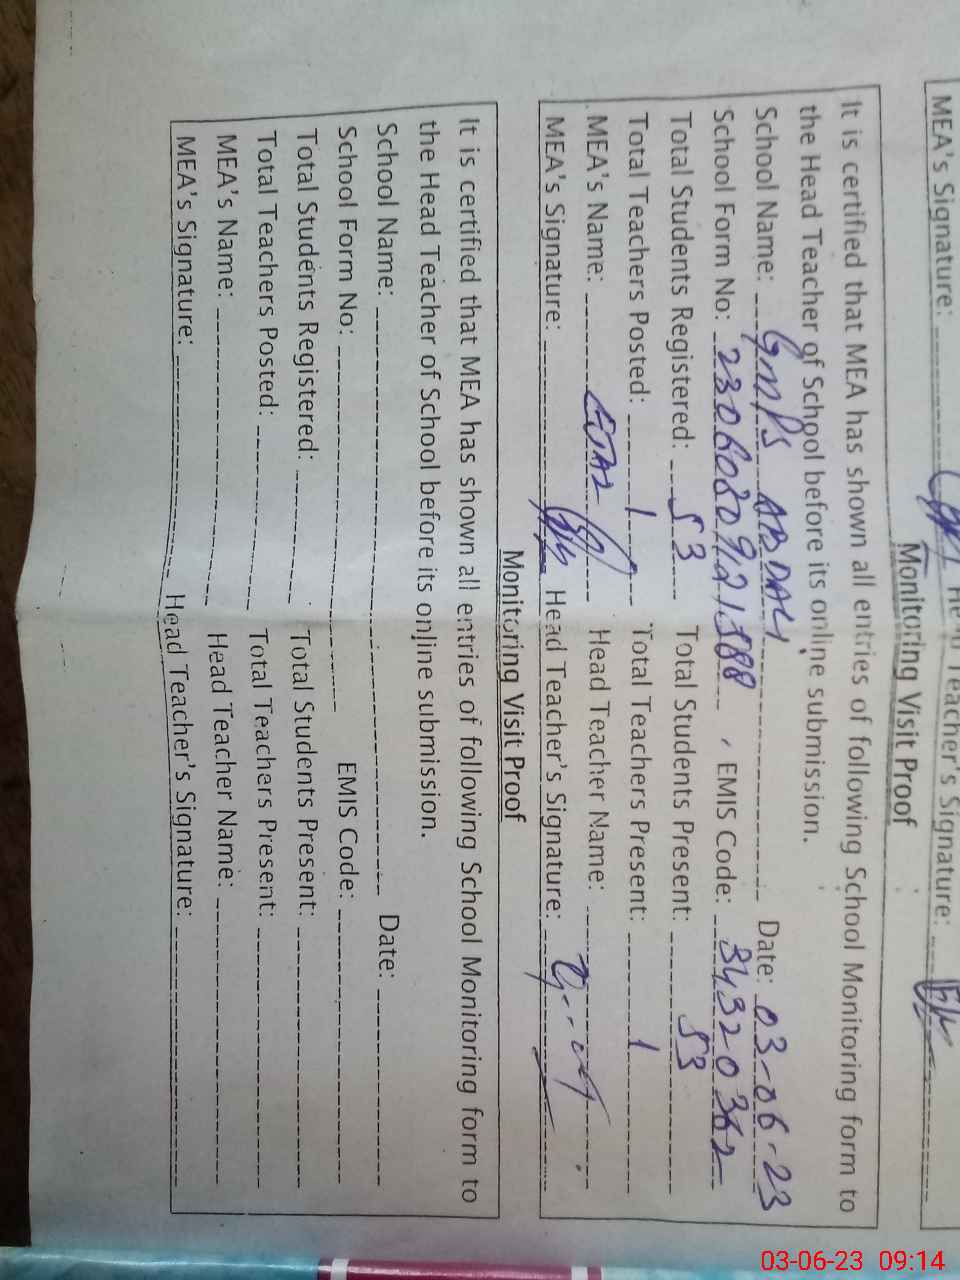 MEA's Signature: Teacher's Signature:
Monitoring Visit Proof
It is certified that MEA has shown all entries of following School Monitoring form to
the Head Teacher of School before its online submission.
School Name: GMPS ABDALI Date: 03-06-23
School Form No: , EMIS Code: 34320362
Total Students Registered: 53 Total Students Present: 53
Total Teachers Posted: 1 Total Teachers Present: 1
MEA's Name: Head Teacher Name:
MEA's Signature: Head Teacher's Signature:
Monitoring Visit Proof
It is certified that MEA has shown all entries of following School Monitoring form to
the Head Teacher of School before its online submission.
School Name: Date:
School Form No: EMIS Code:
Total Students Registered: Total Students Present:
Total Teachers Posted: Total Teachers Present:
MEA's Name: Head Teacher Name:
MEA's Signature: Head Teacher's Signature:
03-06-23 09:14